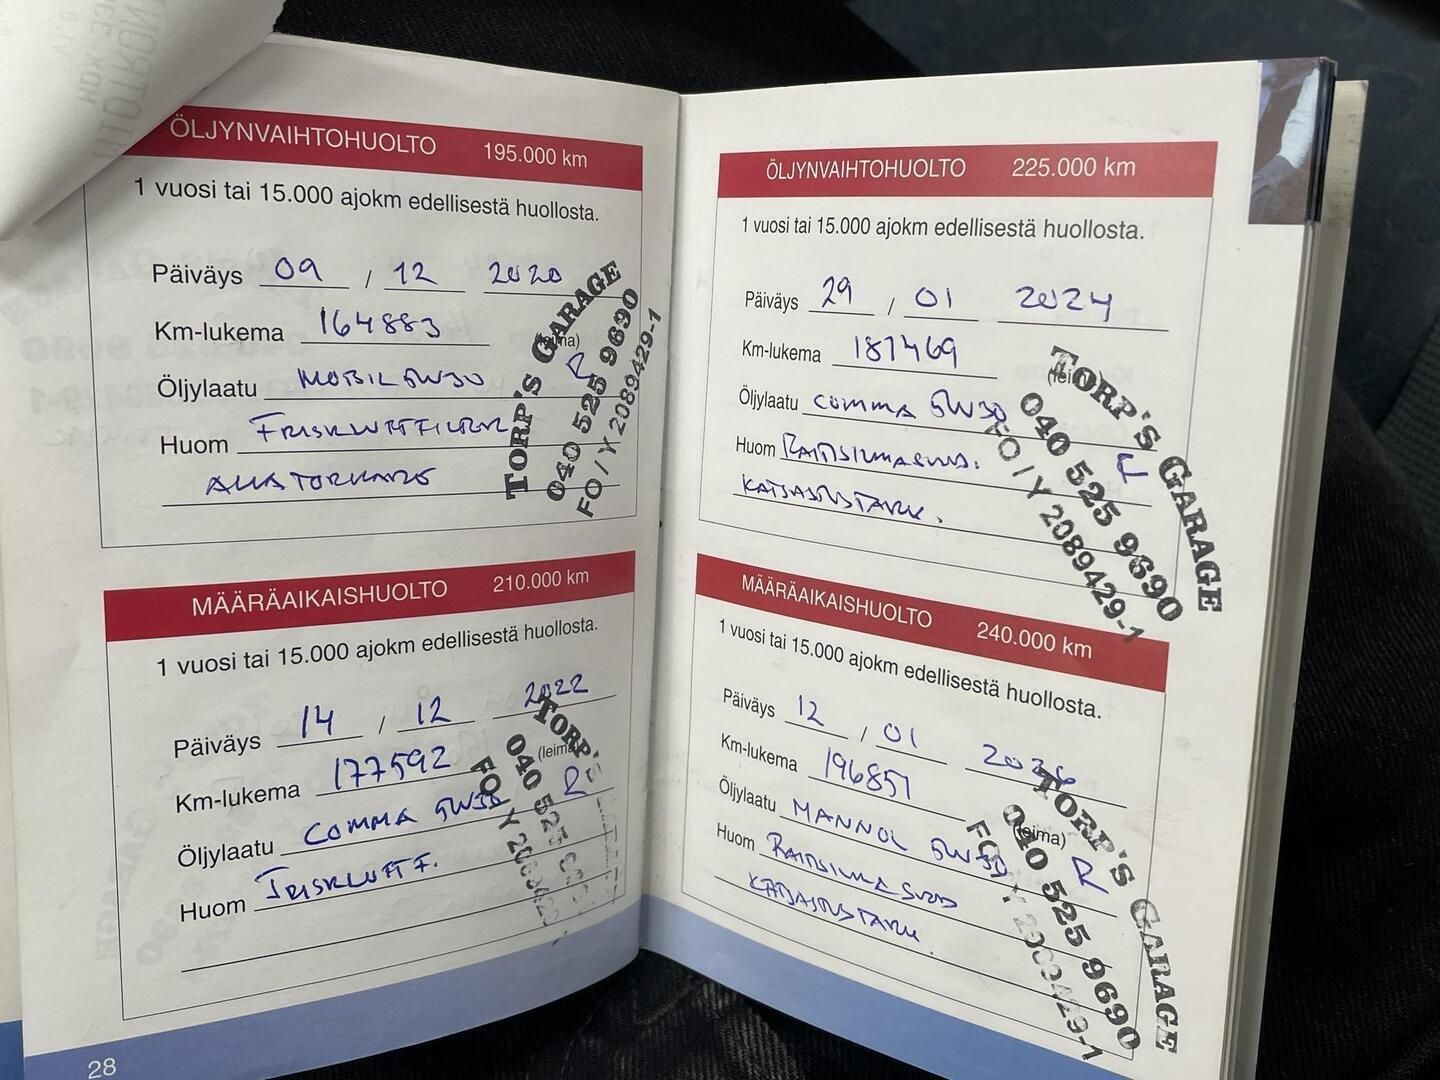 ÖLJYNVAIHTOHUOLTO 195.000 km
1 vuosi tai 15.000 ajokm edellisestä huollosta.
Päiväys 09 / 12 2020
Km-lukema 164883
(leima)
Öljylaatu MOBIL 5W30 R
Huom FRISKLUFTFILTER
TORP'S GARAGE
040 525 9690
FO / Y 2089429-1
MÄÄRÄAIKAISHUOLTO 210.000 km
1 vuosi tai 15.000 ajokm edellisestä huollosta.
Päiväys 14 / 12 2022
Km-lukema 177592
(leima)
Öljylaatu COMMA 5W30 R
Huom FRISKLUFT F.
TORP'S
040 525
FO / Y
28
ÖLJYNVAIHTOHUOLTO 225.000 km
1 vuosi tai 15.000 ajokm edellisestä huollosta.
Päiväys 29 / 01 2024
Km-lukema 187469
(leima)
Öljylaatu COMMA 5W30
Huom RAITISILMASUOD.
KATSASTUSTARK.
TORP'S GARAGE
040 525 9690
FO / Y 2089429-1
MÄÄRÄAIKAISHUOLTO 240.000 km
1 vuosi tai 15.000 ajokm edellisestä huollosta.
Päiväys 12 / 01 2026
Km-lukema 196851
(leima)
Öljylaatu MANNOL 5W30 R
Huom RAITISILMA SUOD
KATSASTUSTARK.
TORP'S GARAGE
040 525 9690
FO / Y 2089429-1